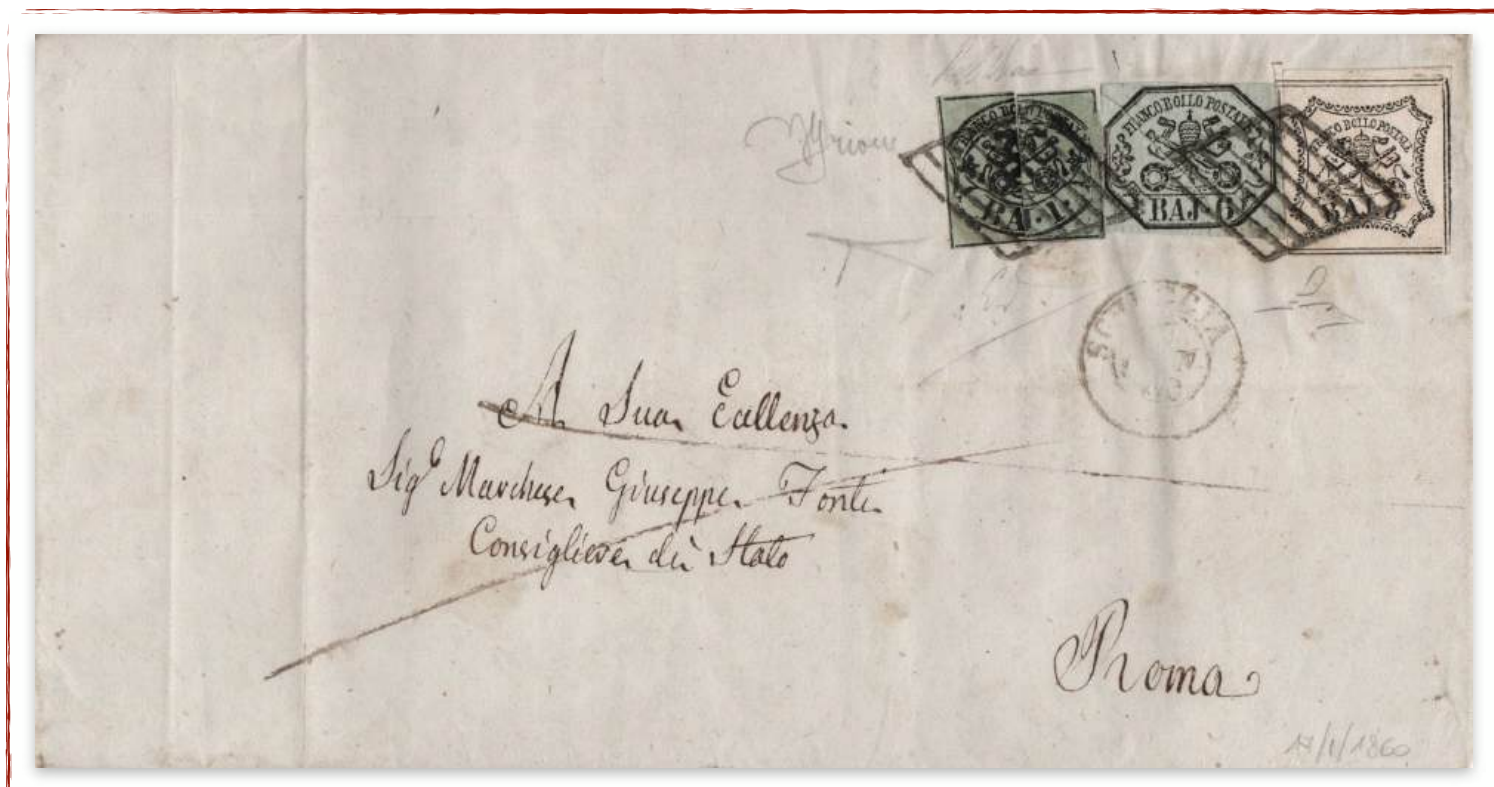 FRANCO BOLLO POSTALE
BAJ. 1.
FRANCO BOLLO POSTALE
BAJ. 6
FRANCO BOLLO POSTALE
BAJ. 8
A Sua Eccllenza
Sigr Marchese Giuseppe Ponti
Consigliere di Stato
Roma
17/1/1860